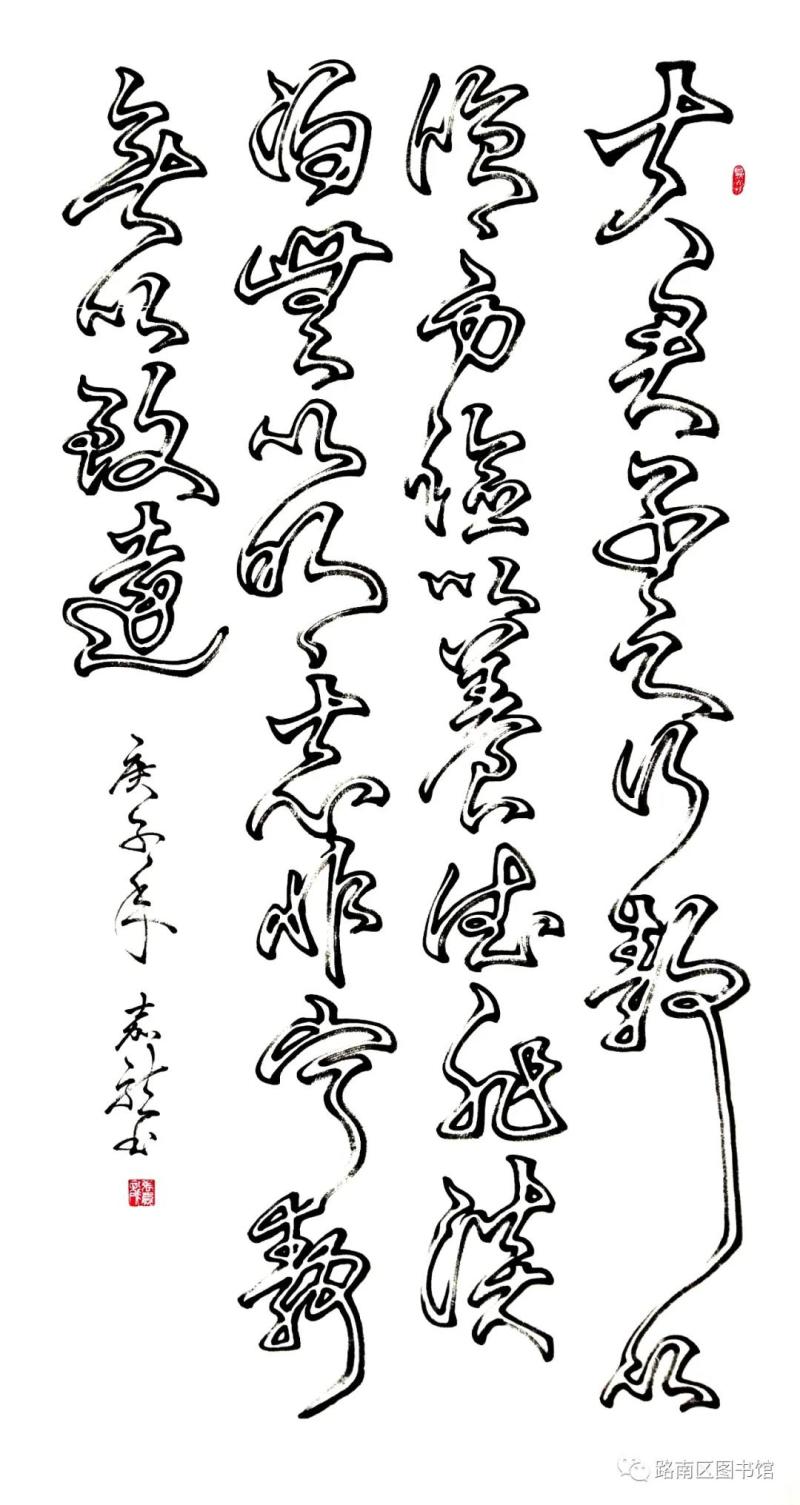 夫君子之行静以
修身儉以養德非淡
泊無以明志非宁静
無以致遠
庚子年 嘉龍书
路南区图书馆